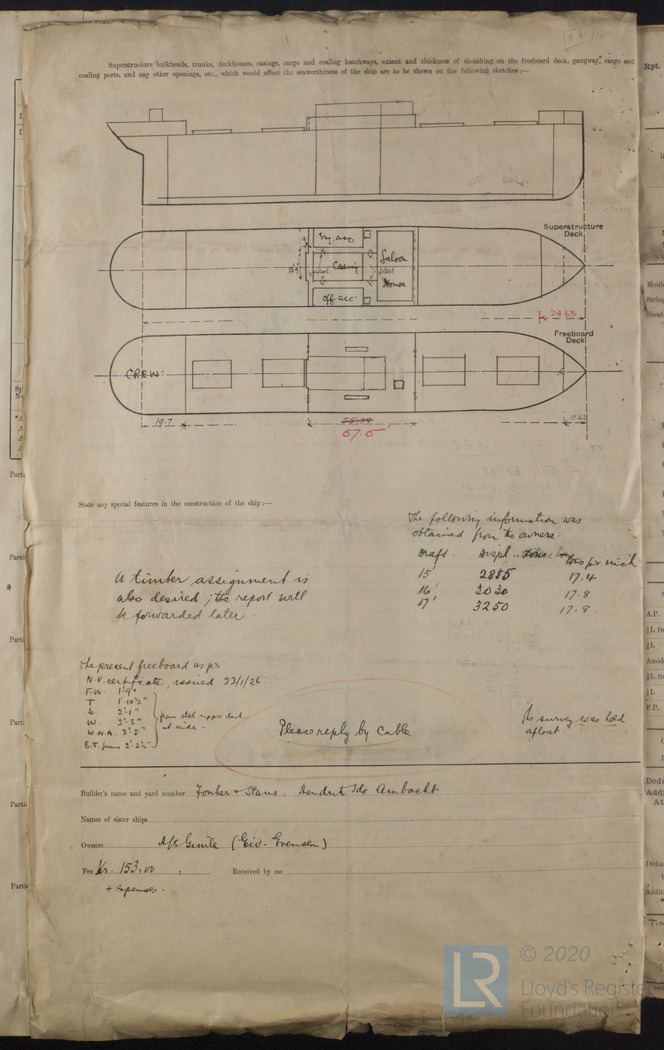 Superstructure bulkheads, trunks, deckhouses, casings, cargo and coaling hatchways, extent and thickness of sheathing on the freeboard deck, gangway, cargo and
coaling ports, and any other openings, etc., which would affect the seaworthiness of the ship are to be shewn on the following sketches :—
Superstructure
Deck
Eng. acc.
Casing
Saloon
House
Off. acc.
24.63
Freeboard
Deck
CREW.
19.7
57.5
11.63
State any special features in the construction of the ship :—
The following information was
obtained from the owners:
Draft. Displ. tons per inch
15' 2885 17.4
16' 3030 17.8
17' 3250 17.8.
A timber assignment is
also desired; the report will
be forwarded later.
The present freeboard as per
N.V. certificate, issued 22/1/26:
F.W. 1'-9"
T. 1'-10½"
S. 2'-1"
W. 2'-3"
W.N.A. 2'-5"
from steel upper deck
at side.
Please reply by Cable
The survey was held
afloat
Builder's name and yard number Jonker & Stans. Hendrik Ido Ambacht
Names of sister ships
Owners A/S Gimle (Eiv. Evensen)
Fee Kr. 153,00 Received by me
+ expenses.
© 2020
LR
Lloyd's Register
Foundation
Rpt.
A.P.
F.P.